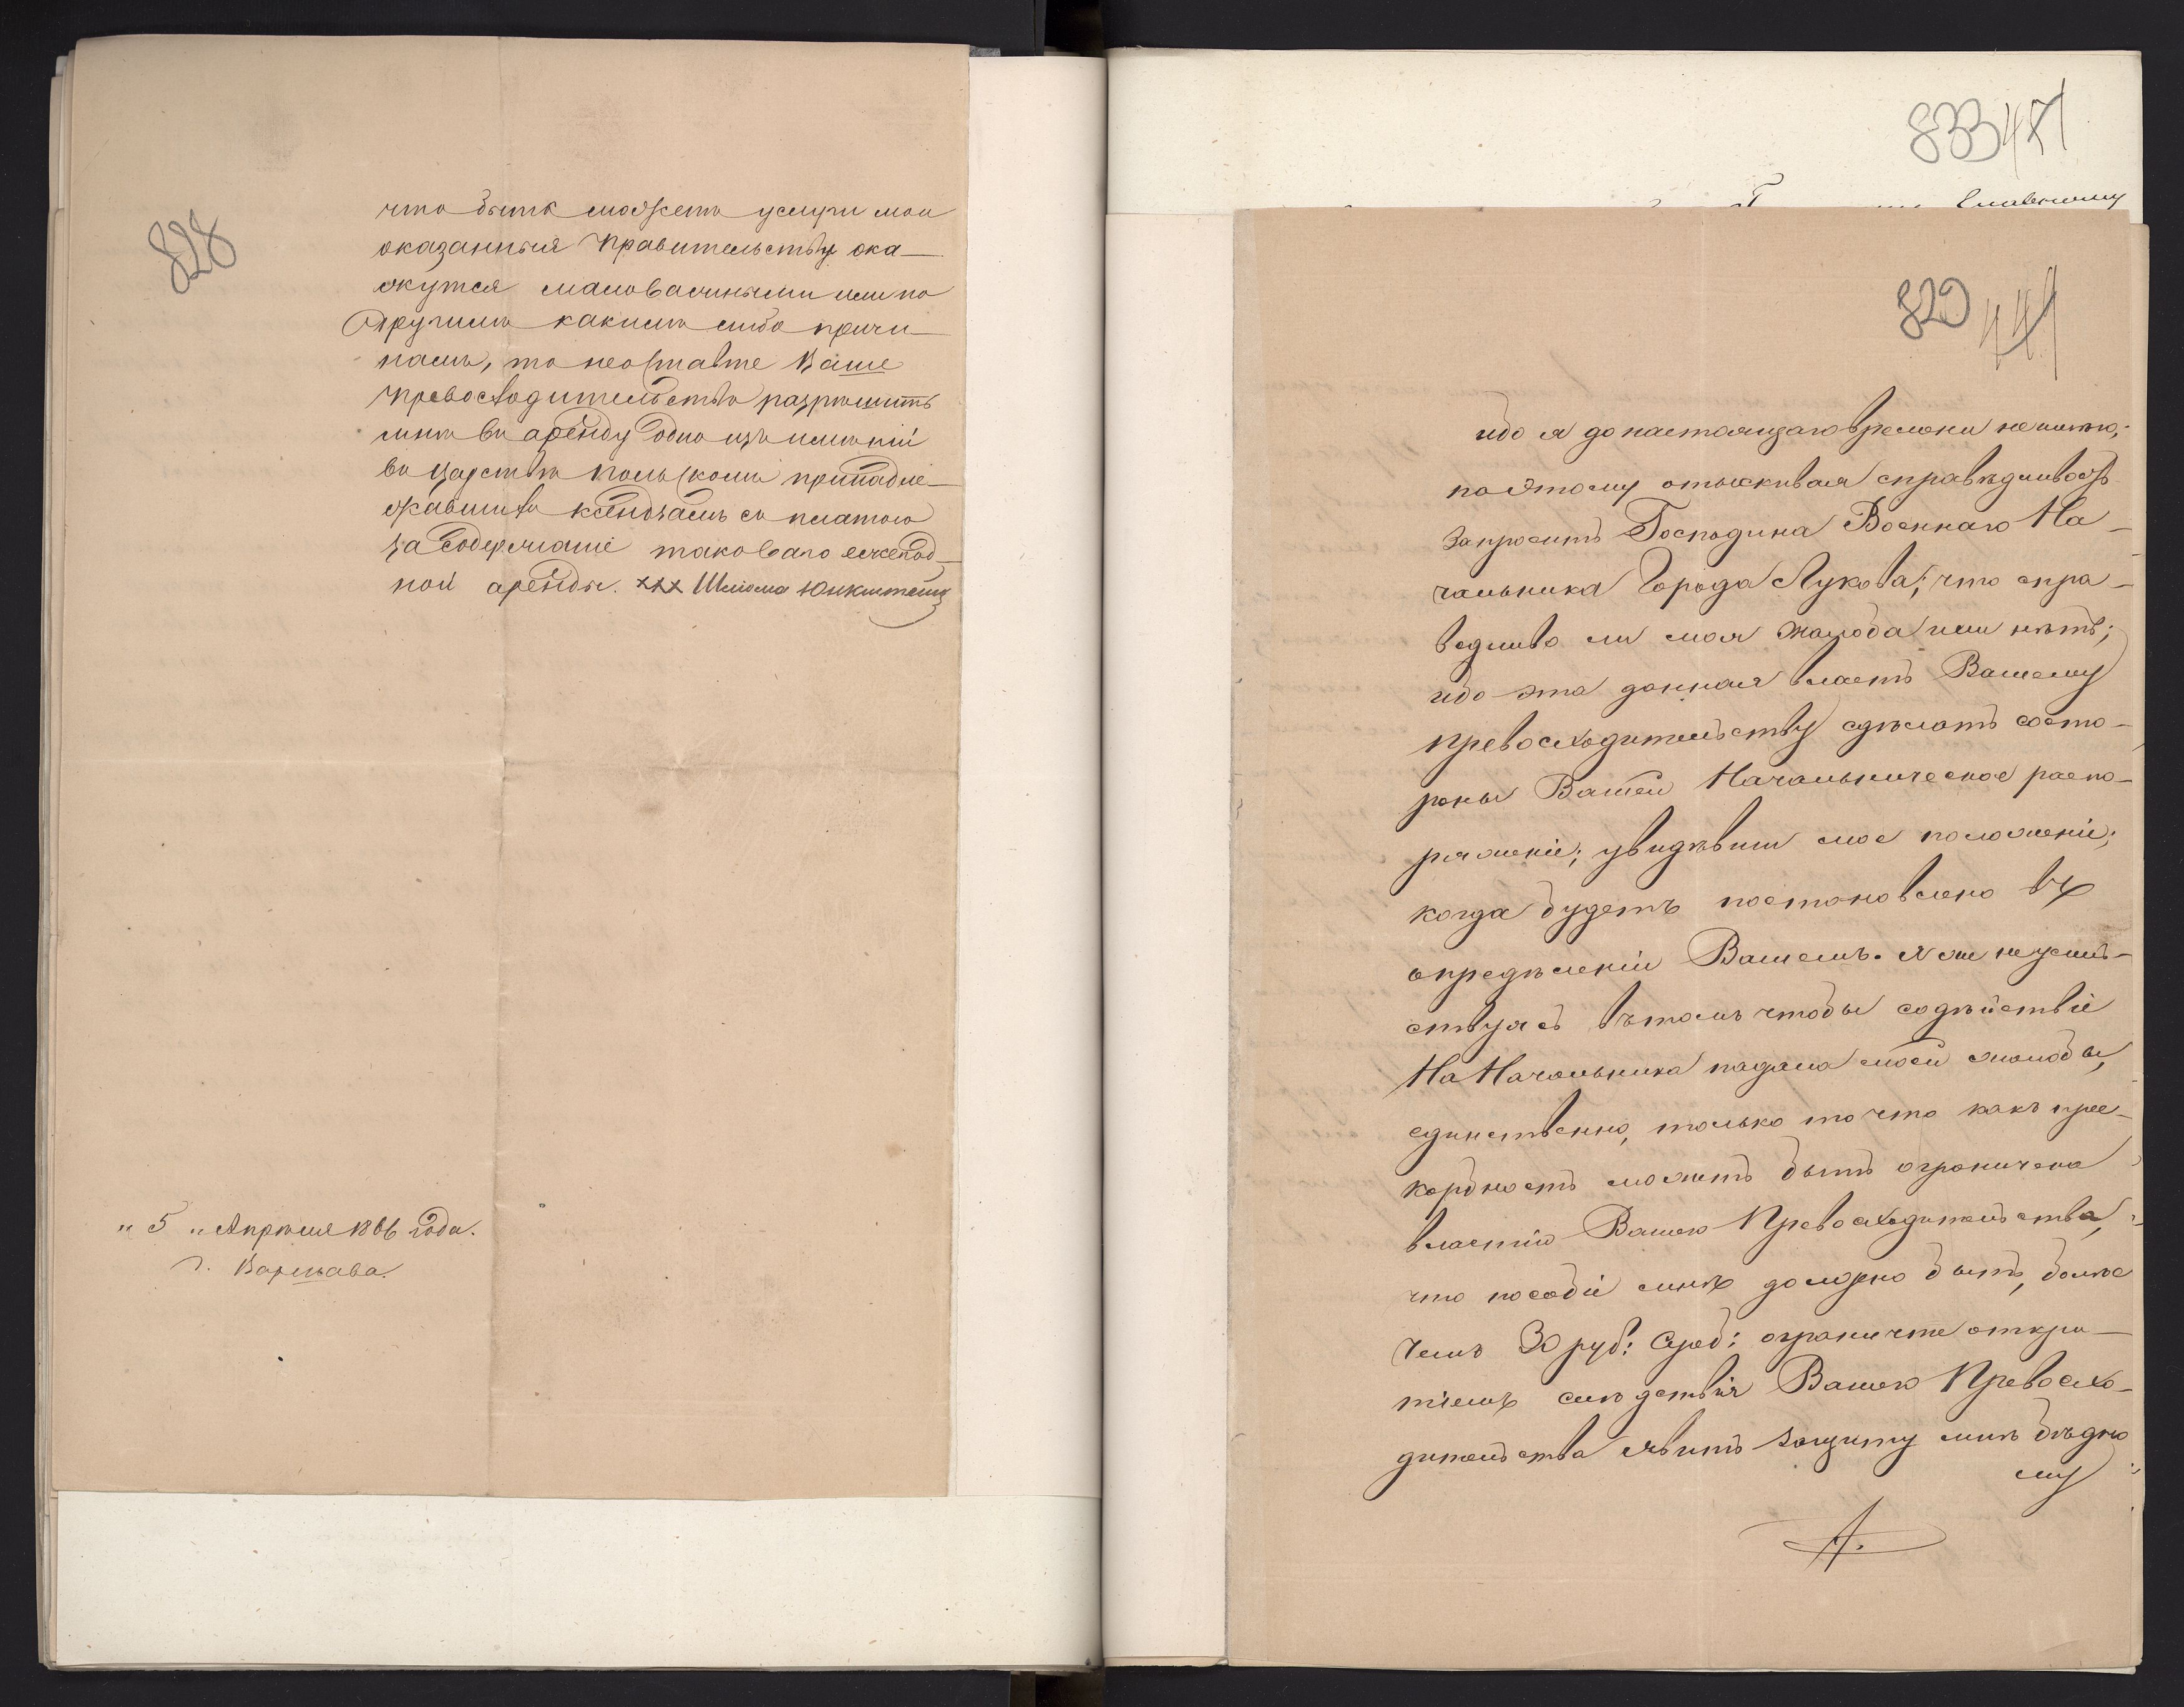 828
что быть можетъ услуги мои
оказанныя Правительству ока-
жутся маловажными или по
другимъ какимъ либо причи-
намъ, то неоставте Ваше
Превосходительство разрѣшить
мнѣ въ аренду одно изъ имѣній
въ Царствѣ Польскомъ принадле-
жавшихъ ксендзамъ съ платою
за содержаніе таковаго ежегод-
ной аренды. xxx Шлиома
" 5 " Апрѣля 1866 года.
г. Варшава.
833 471
829 441
ибо я до настоящаго времени не имѣю;
поэтому отыскивая справѣдливость
запросить Господина Военнаго На-
чальника Города Лукова; что спра-
ведливо ли моя жалоба или нѣтъ;
ибо эта данная власть Вашему
Превосходительству сдѣлать состо-
роны Вашей Начальническое распо-
ряженіе; увидѣвши мое положеніе;
когда будетъ постановлено въ
опредѣленіи Вашемъ. Я же
въ томъ чтобы содѣйствіе
На Начальника падала моей жалобы,
единственно, только то что какъ
можетъ быть ограничена
властію Вашею Превосходительства,
что пособіе мнѣ должно быть, болѣе
чемъ 30 руб: Сереб: ограничте откры-
тіемъ слѣдствія Вашею Превосхо-
дительства явить защиту мнѣ бѣдно
му